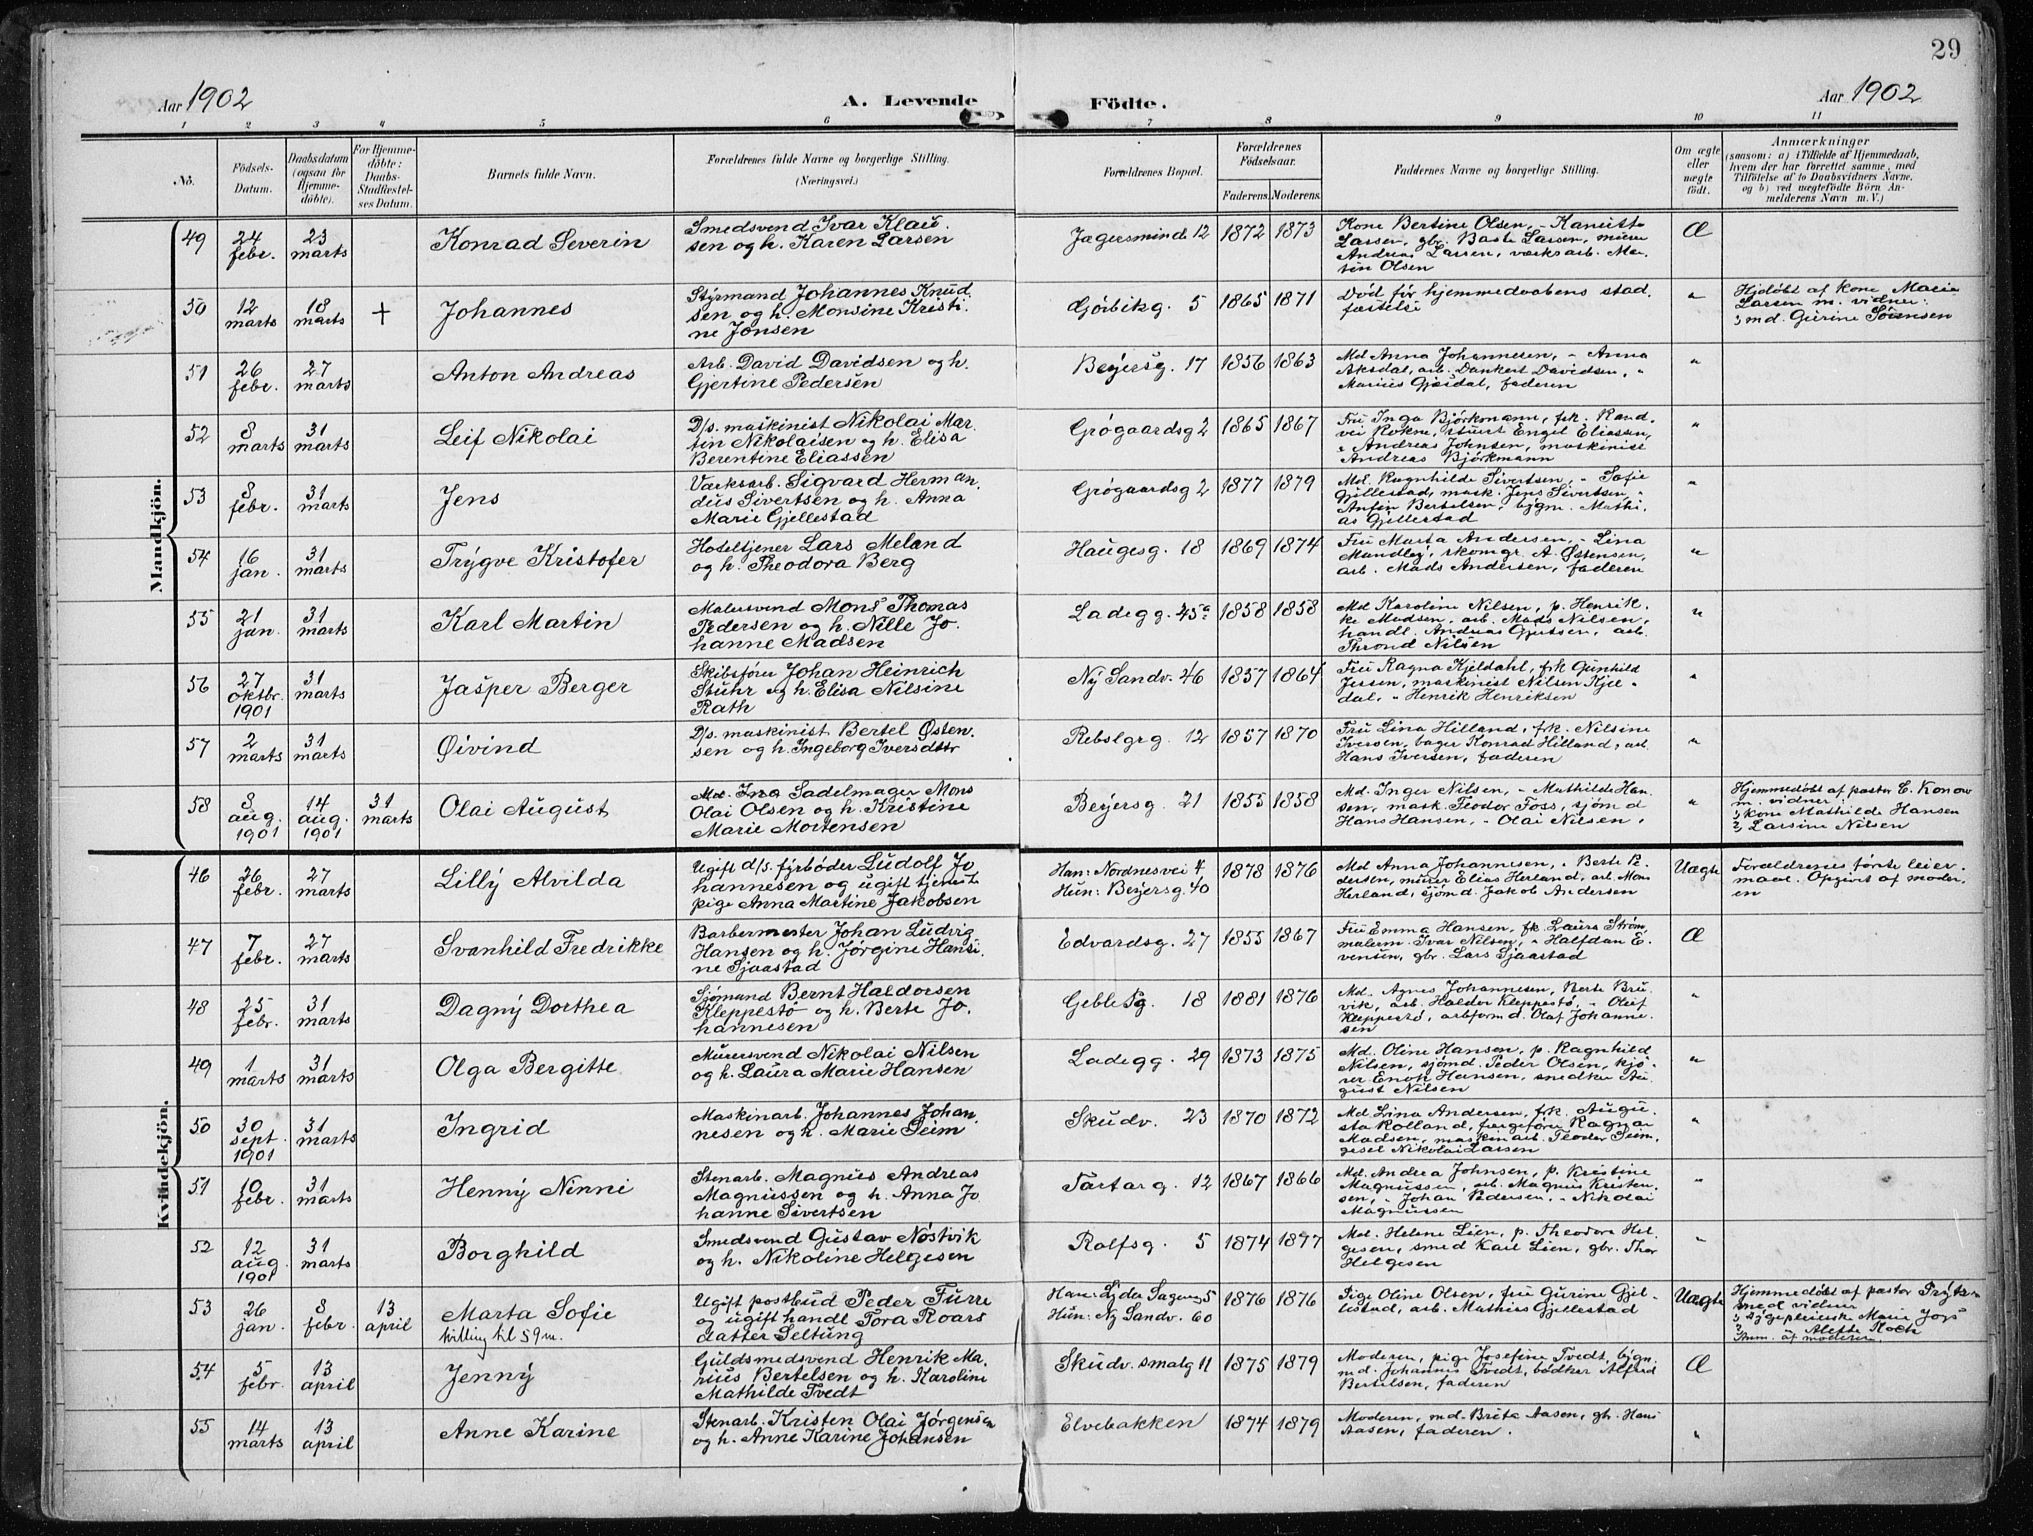 29
Aar 1902
A. Levende Födte.
Aar 1902
1 2 3 4 5 6 7 8 9 10 11
No.
Födsels-Datum.
Daabsdatum (ogsaa for Hjemmedöbte).
For Hjemmedöbte: Daabs-Stadfæstelses Datum.
Barnets fulde Navn.
Forældrenes fulde Navne og borgerlige Stilling.
(Næringsvei.)
Forældrenes Bopæl.
Forældrenes Födselsaar.
Faderens. Moderens.
Faddernes Navne og borgerlige Stilling.
Om ægte eller uægte födt.
Anmærkninger
(saasom: a) i Tilfælde af Hjemmedaab, hvem der har forrettet samme, med Tilföielse af to Daabsvidners Navne, og b) ved uægtefödte Börn Anmelderens Navn m. V.)
Mandkjön.
49 24 febr. 23 marts Konrad Severin
Smedsvend Ivar Klau-
sen og h. Karen Larsen
Jægersminde 12 1872 1873
Kone Bertine Olsen,
Larsen, gbr. Larsen, murer
Andreas Larsen, værksarb. Mar-
tin Olsen
Æ
50 12 marts 18 marts + Johannes
Styrmand Johannes Knud-
sen og h. Monsine Kristi-
ne Jonsen
Gørbitzg. 5 1865 1871
Død før hjemmedaabens stad-
fæstelse
"
Hjdøbt af kone Marie
Larsen m. vidner:
md. Gurine Sørensen
51 26 febr. 27 marts Anton Andreas
Arb. David Davidsen og h.
Gjertine Pedersen
Beyersg. 17 1856 1863
Md Anna Johannesen, " Anna
Aksdal, arb. Dankert Davidsen, "
Marius Gjesdal, faderen
"
52 8 marts 31 marts Leif Nikolai
D/s. maskinist Nikolai Mar-
tin Nikolaisen og h. Elisa
Berentine Eliassen
Grøgaardsg 2 1865 1867
Fru Inga Bjørkmann, frk. Rand-
vei stuert Engel Eliassen,
" Andreas Johnsen, maskinist
Andreas Bjørkmann
"
53 8 febr. 31 marts Jens
Værksarb. Sigvard Herman-
dus Sivertsen og h. Anna
Marie Gjellestad
Grøgaardsg 2 1877 1879
Md. Ragnhilde Sivertsen, " Sofie
Gjellestad, mask. Jens Sivertsen, "
Anfin Bertelsen, bygm. Mathi-
as Gjellestad
"
54 16 jan. 31 marts Trygve Kristofer
Hoteltjener Lars Meland
og h. Theodora Berg
Haugesg. 18 1869 1874
Fru Marta Andersen, " Lina
Mundley, skomgr. A. Østensen,
arb. Mads Andersen, faderen
"
55 21 jan. 31 marts Karl Martin
Malersvend Mons Thomas
Pedersen og h. Nille Jo-
hanne Madsen
Ladegg. 45a 1858 1858
Md Karoline Nilsen, p. Henrik-
ke Madsen, arb. Mads Nilsen,
handl. Andreas Gjertsen, arb.
Thrond Nilsen
"
56 27 oktbr. 1901 31 marts Jasper Berger
Skibsfører Johan Heinrich
Stuhr og h. Elisa Nilsine
Rath
Ny Sandv. 46 1857 1864
Fru Ragna Kjeldahl, frk Gunhild
Jersen, maskinist Nilsen Kjel-
dal, " Henrik Henriksen
"
57 2 marts 31 marts Øivind
D/s. maskinist Bertel Østen-
sen og h. Ingeborg Iversdttr
Rebslgrg. 12 1857 1870
Fru Lina Hilland, frk. Nilsine
Iversen, bager Konrad Hilland, arb.
Hans Iversen, faderen
"
58 8 aug. 1901 14 aug. 1901 31 marts Olai August
Sadelmager Mons
Olai Olsen og h. Kristine
Marie Mortensen
Beyersg. 21 1855 1858
Md. Inger Nilsen, " Mathilde Han-
sen, mask. Teodor Foss, sjømd
Hans Hansen, " Olai Nilsen,
"
Hjemmedøbt af pastor E. Konow
m. vidner:
kone Mathilde Hansen
" Larsine Nilsen
Kvindekjön.
46 26 febr. 27 marts Lilly Alvilda
Ugift d/s. fyrbøder Ludolf Jo-
hannesen og ugift tjeneste
pige Anna Martine Jakobsen
Han: Nordnesvei 4
Hun: Beyersg. 40
1878 1876
Md Anna Johannesen, " Berte P-
dersen, murer Elias Herland, arb. Mons
Herland, sjømd. Jakob Andersen
Uægte
Forældrenes første leier-
maal. Opgivet af moder-
en
47 7 febr. 27 marts Svanhild Fredrikke
Barbermester Johan Ludvig
Hansen og h. Jørgine Hansi-
ne Sjaastad
Edvardsg. 27 1855 1867
Fru Emma Hansen, fk. Laura Strøm,
malerm. Ivar Nilsen, " Halfdan E-
vensen, gbr. Lars Sjaastad
Æ
48 25 febr. 31 marts Dagny Dorthea
Sjømand Bernt Haldorsen
Kleppestø og h. Berte Jo-
hannesen
Geblesg. 18 1881 1876
Md. Agnes Johannesen, Berte Bru-
vik, arb. Haldor Kleppestø, " Oluf
Kleppestø, arbformd. Olaf Johanne-
sen
"
49 1 marts 31 marts Olga Bergitte
Murersvend Nikolai Nilsen
og h. Laura Marie Hansen
Ladegg. 29 1873 1875
Md. Oline Hansen, p. Ragnhild
Nilsen, sjømd. Peder Olsen, kjø-
rer Enok Hansen, snedker Au-
gust Nilsen
"
50 30 sept. 1901 31 marts Ingrid
Maskinarb. Johannes Johan-
nesen og h. Marie Seim
Skudv. 23 1870 1872
Md Lina Andersen, frk. Augu-
sta Rolland, færgefører Ragnar
Madsen, maskinarb. Teodor Seim,
gesel Nikolai Larsen
"
51 10 febr. 31 marts Henny Ninni
Stenarb. Magnus Andreas
Magnussen og h. Anna Jo-
hanne Sivertsen
Tartarg. 12 1867 1866
Md. Andrea Johnsen, p. Kristine
Magnussen, arb. Magnus Kristen-
sen, " Johan Pedersen, " Nikolai
Magnussen
"
52 12 aug. 1901 31 marts Borghild
Smedsvend Gustav Nøstvik
og h. Nikoline Helgesen
Rolfsg. 5 1874 1877
Md. Helene Lien, p. Theodora Hel-
gesen, smed Karl Lien, gbr. Thor
Helgesen
"
53 26 jan. 8 febr. 13 april Marta Sofie
tvilling til 59 m.
Ugift postbud Peder Furre
og ugift handl Tora Roars-
datter Seltung
Han: 5
Hun: Ny Sandv. 60
1876 1876
Pige Oline Olsen, fru Gurine Gjel-
lestad, arb. Mathias Gjellestad
Uægte
Hjemmedøbt af pastor
med vidner
sygepleierske Marie
" Alette Koch
Anm. af moderen
54 5 febr. 13 april Jenny
Guldsmedsvend Henrik Ma-
rius Bertelsen og h. Karoline
Mathilde Tvedt
Skudv. smalg 11 1875 1879
Moderen, pige Josefine Tvedt, bygn.
md. Johannes Tvedt, bødker Alfred
Bertelsen, faderen
Æ
55 14 marts 13 april Anne Karine
Stenarb. Kristen Olai Jørgensen
og h. Anne Karine Johansen
Elvebakken 1874 1879
Moderen, md. Brita Aasen, gh. Hans
Aasen, faderen.
"